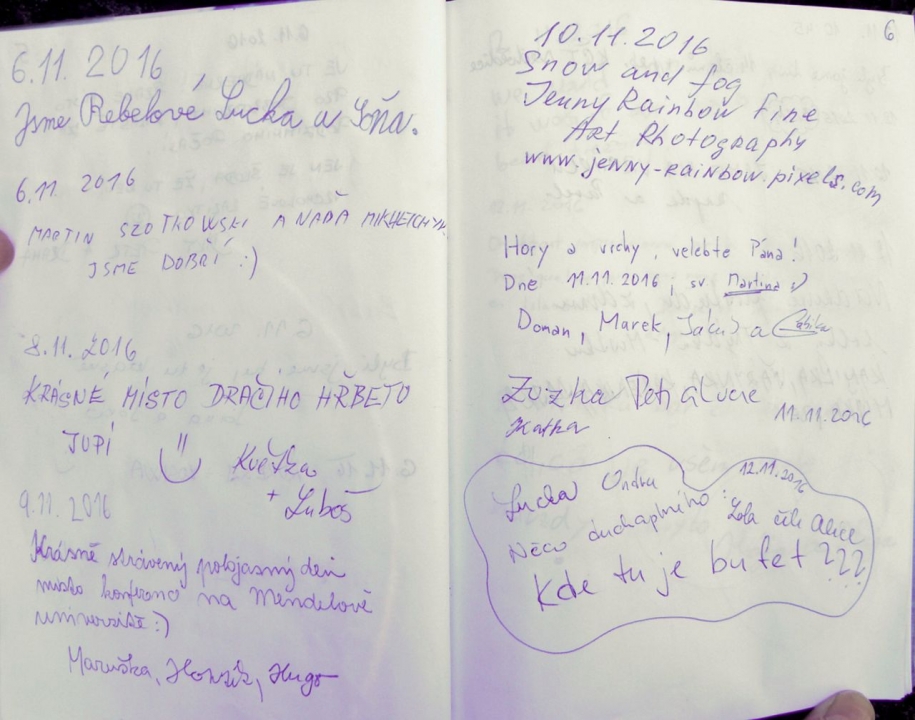 6.11.2016,
Jsme Rebelové Lucka a Soňa.
6.11 2016
MARTIN SZOTKOWSKI A NAĎA
JSME DOBŘÍ :)
8.11.2016
KRÁSNÉ MÍSTO DRAČÍHO HŘBETO
JUPÍ
Květka
+ Luboš
9.11.2016
Krásně strávený polojasný den
místo konferencí na Mendelově
univerzitě :)
Maruška, Honzík, Hugo
6
10.11.2016
Snow and fog
Jenny Rainbow Fine
Art Photography
www.jenny-rainbow.pixels.com
Hory a vrchy, velebte Pána!
Dne 11.11.2016, sv Martina
Doman, Marek, Jakub a
Zuzka
Katka
11.11.2016
12.11.2016
Lucka Ondra
Něco duchaplného: Lola čili Alice
Kde tu je bufet ???